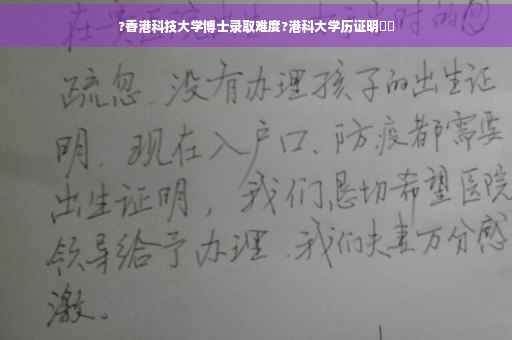 ?香港科技大学博士录取难度?港科大学历证明
疏忽、没有办理孩子的出生证
明、现在入户口、防疫都需要
出生证明，我们恳切希望医院
领导给予办理、我们夫妻万分感
激。